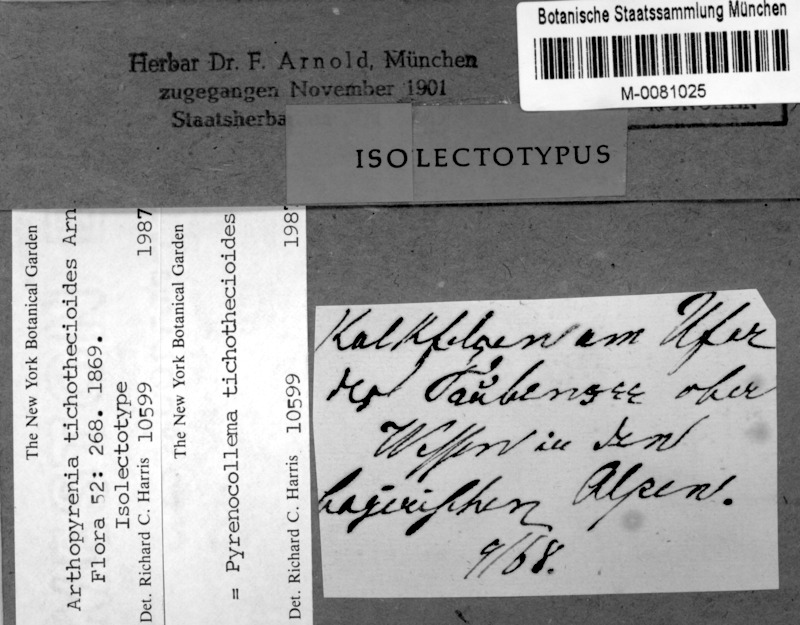 Botanische Staatssammlung München
M-0081025
Herbar Dr. F. Arnold, München
zugegangen November 1901
Staatsherba
MÜNCHEN
ISOLECTOTYPUS
The New York Botanical Garden
Arthopyrenia tichothecioides Arn
Flora 52: 268. 1869.
Isolectotype
Det. Richard C. Harris 10599 1987
The New York Botanical Garden
= Pyrenocollema tichothecioides
Det. Richard C. Harris 10599 1987
Kalkfelsen am Ufer
des Taubensee ober
Wessen in den
bayerischen Alpen.
9/68.